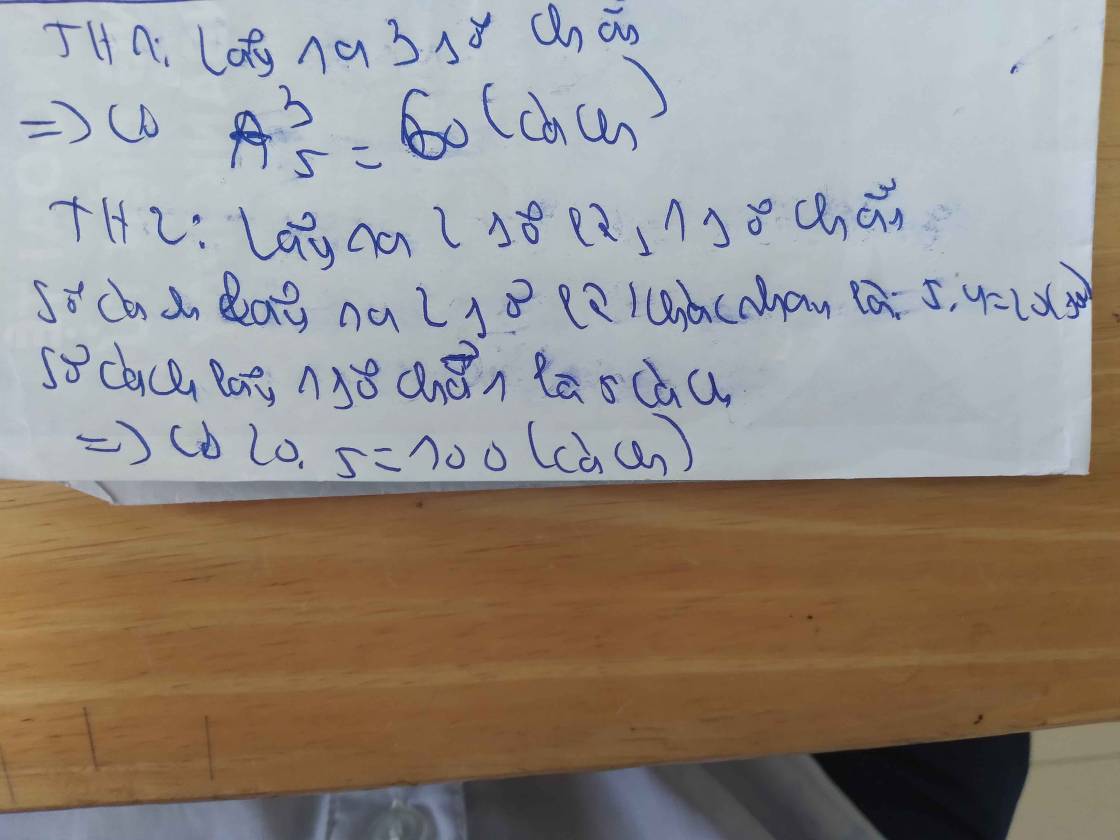 TH1: Lấy ra 3 số chẵn
=> Có A³₅ = 60 (cách)
TH2: Lấy ra 2 số lẻ, 1 số chẵn
Số cách lấy ra 2 số lẻ khác nhau là: 5.4=20
Số cách lấy 1 số chẵn là 5 cách
=> Có 20.5=100 (cách)